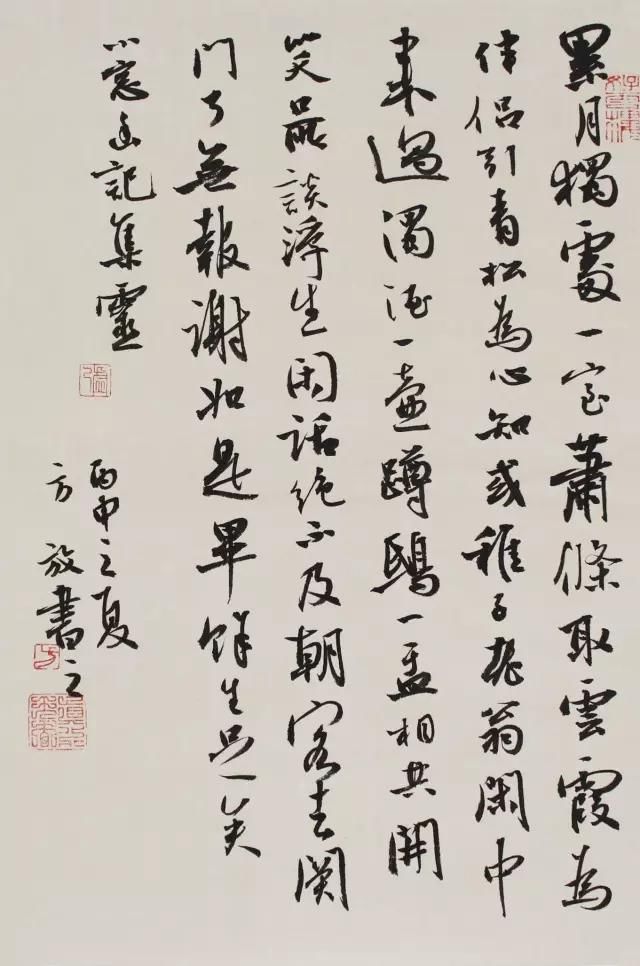 累月獨處一室蕭條取雲霞為
伴侶引青松為心知或稚子老翁閑中
来過濁酒一壺蹲鴟一盂相共開
笑品談浮生閑話绝不及朝客去関
門了無報謝如是畢餘生足矣
小窓幽記集靈
丙申之夏
方放書之